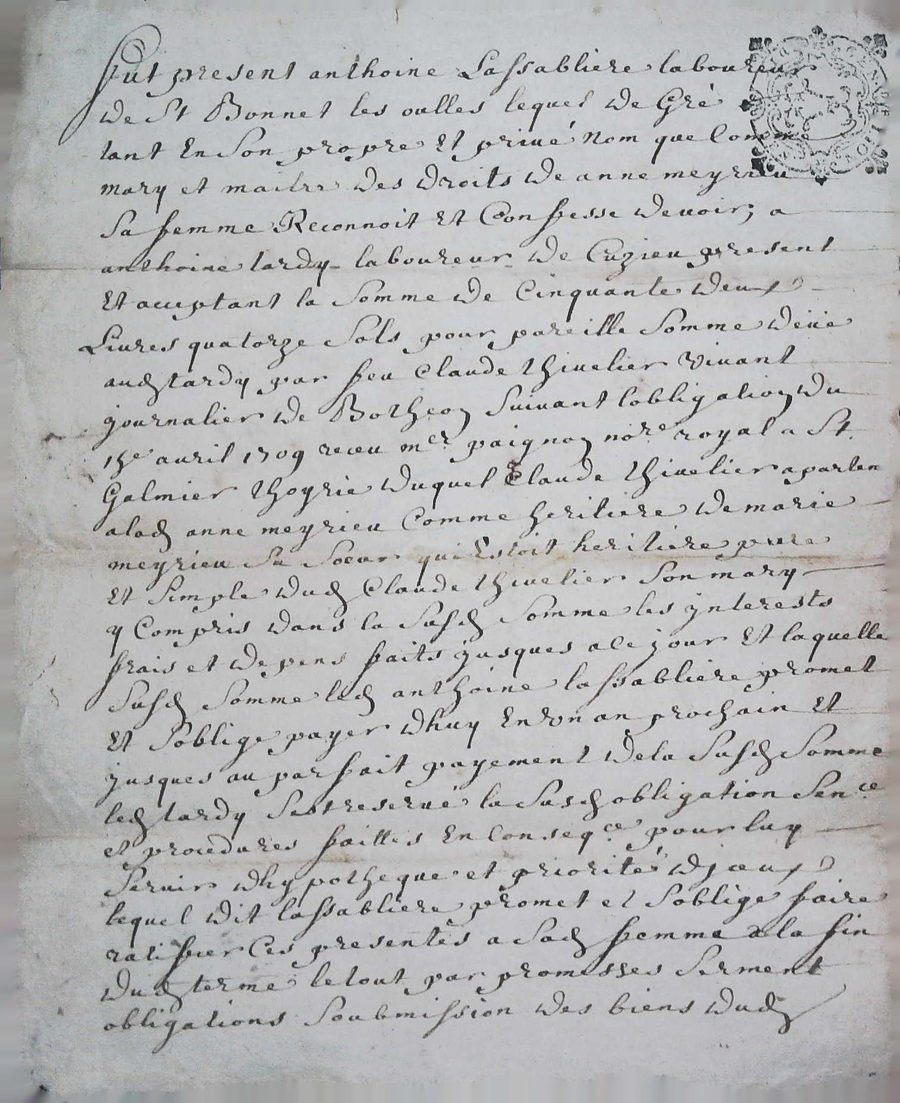 fut present anthoine Lassabliere laboureur
de St Bonnet les oulles lequel de Gré
tant En Son propre Et privé nom que Comme
mary et maitre des droits de anne meyrieu
Sa femme Reconnoit Et Confesse devoir, a
anthoine tardy laboureur de Cuzieu present
Et acceptant la Somme de Cinquante deux
Livres quatorze Sols pour pareille Somme deüe
aud tardy par feu Claude thivelier vivant
journalier de Botheon Suivant lobligation du
avril 1709 receu me paignon nore royal a St
Galmier hoyrie duquel Claude thivelier aparten
alad anne meyrieu Comme heritiere de marie
meyrieu Sa Soeur qui Estoit heritiere pure
Et Simple dud Claude thivelier Son mary
y Compris dans la Susd Somme les jnterests
frais et depens faits jusques a Ce jour Et laquelle
Susd Somme led anthoine lassabliere promet
Et Soblige payer dhuy En Vn an prochain Et
jusques au parfait payement dela Susd Somme
led tardy Sest reservé la Susd obligation Sence
et procedures faittes En Conseqce pour luy
Servir dhypotheque et priorité djceux
lequel dit lassabliere promet et Soblige faire
ratiffier Ces presentes a Sad femme a la fin
dud terme le tout par promesses Serment
obligations Soubmission des biens dud